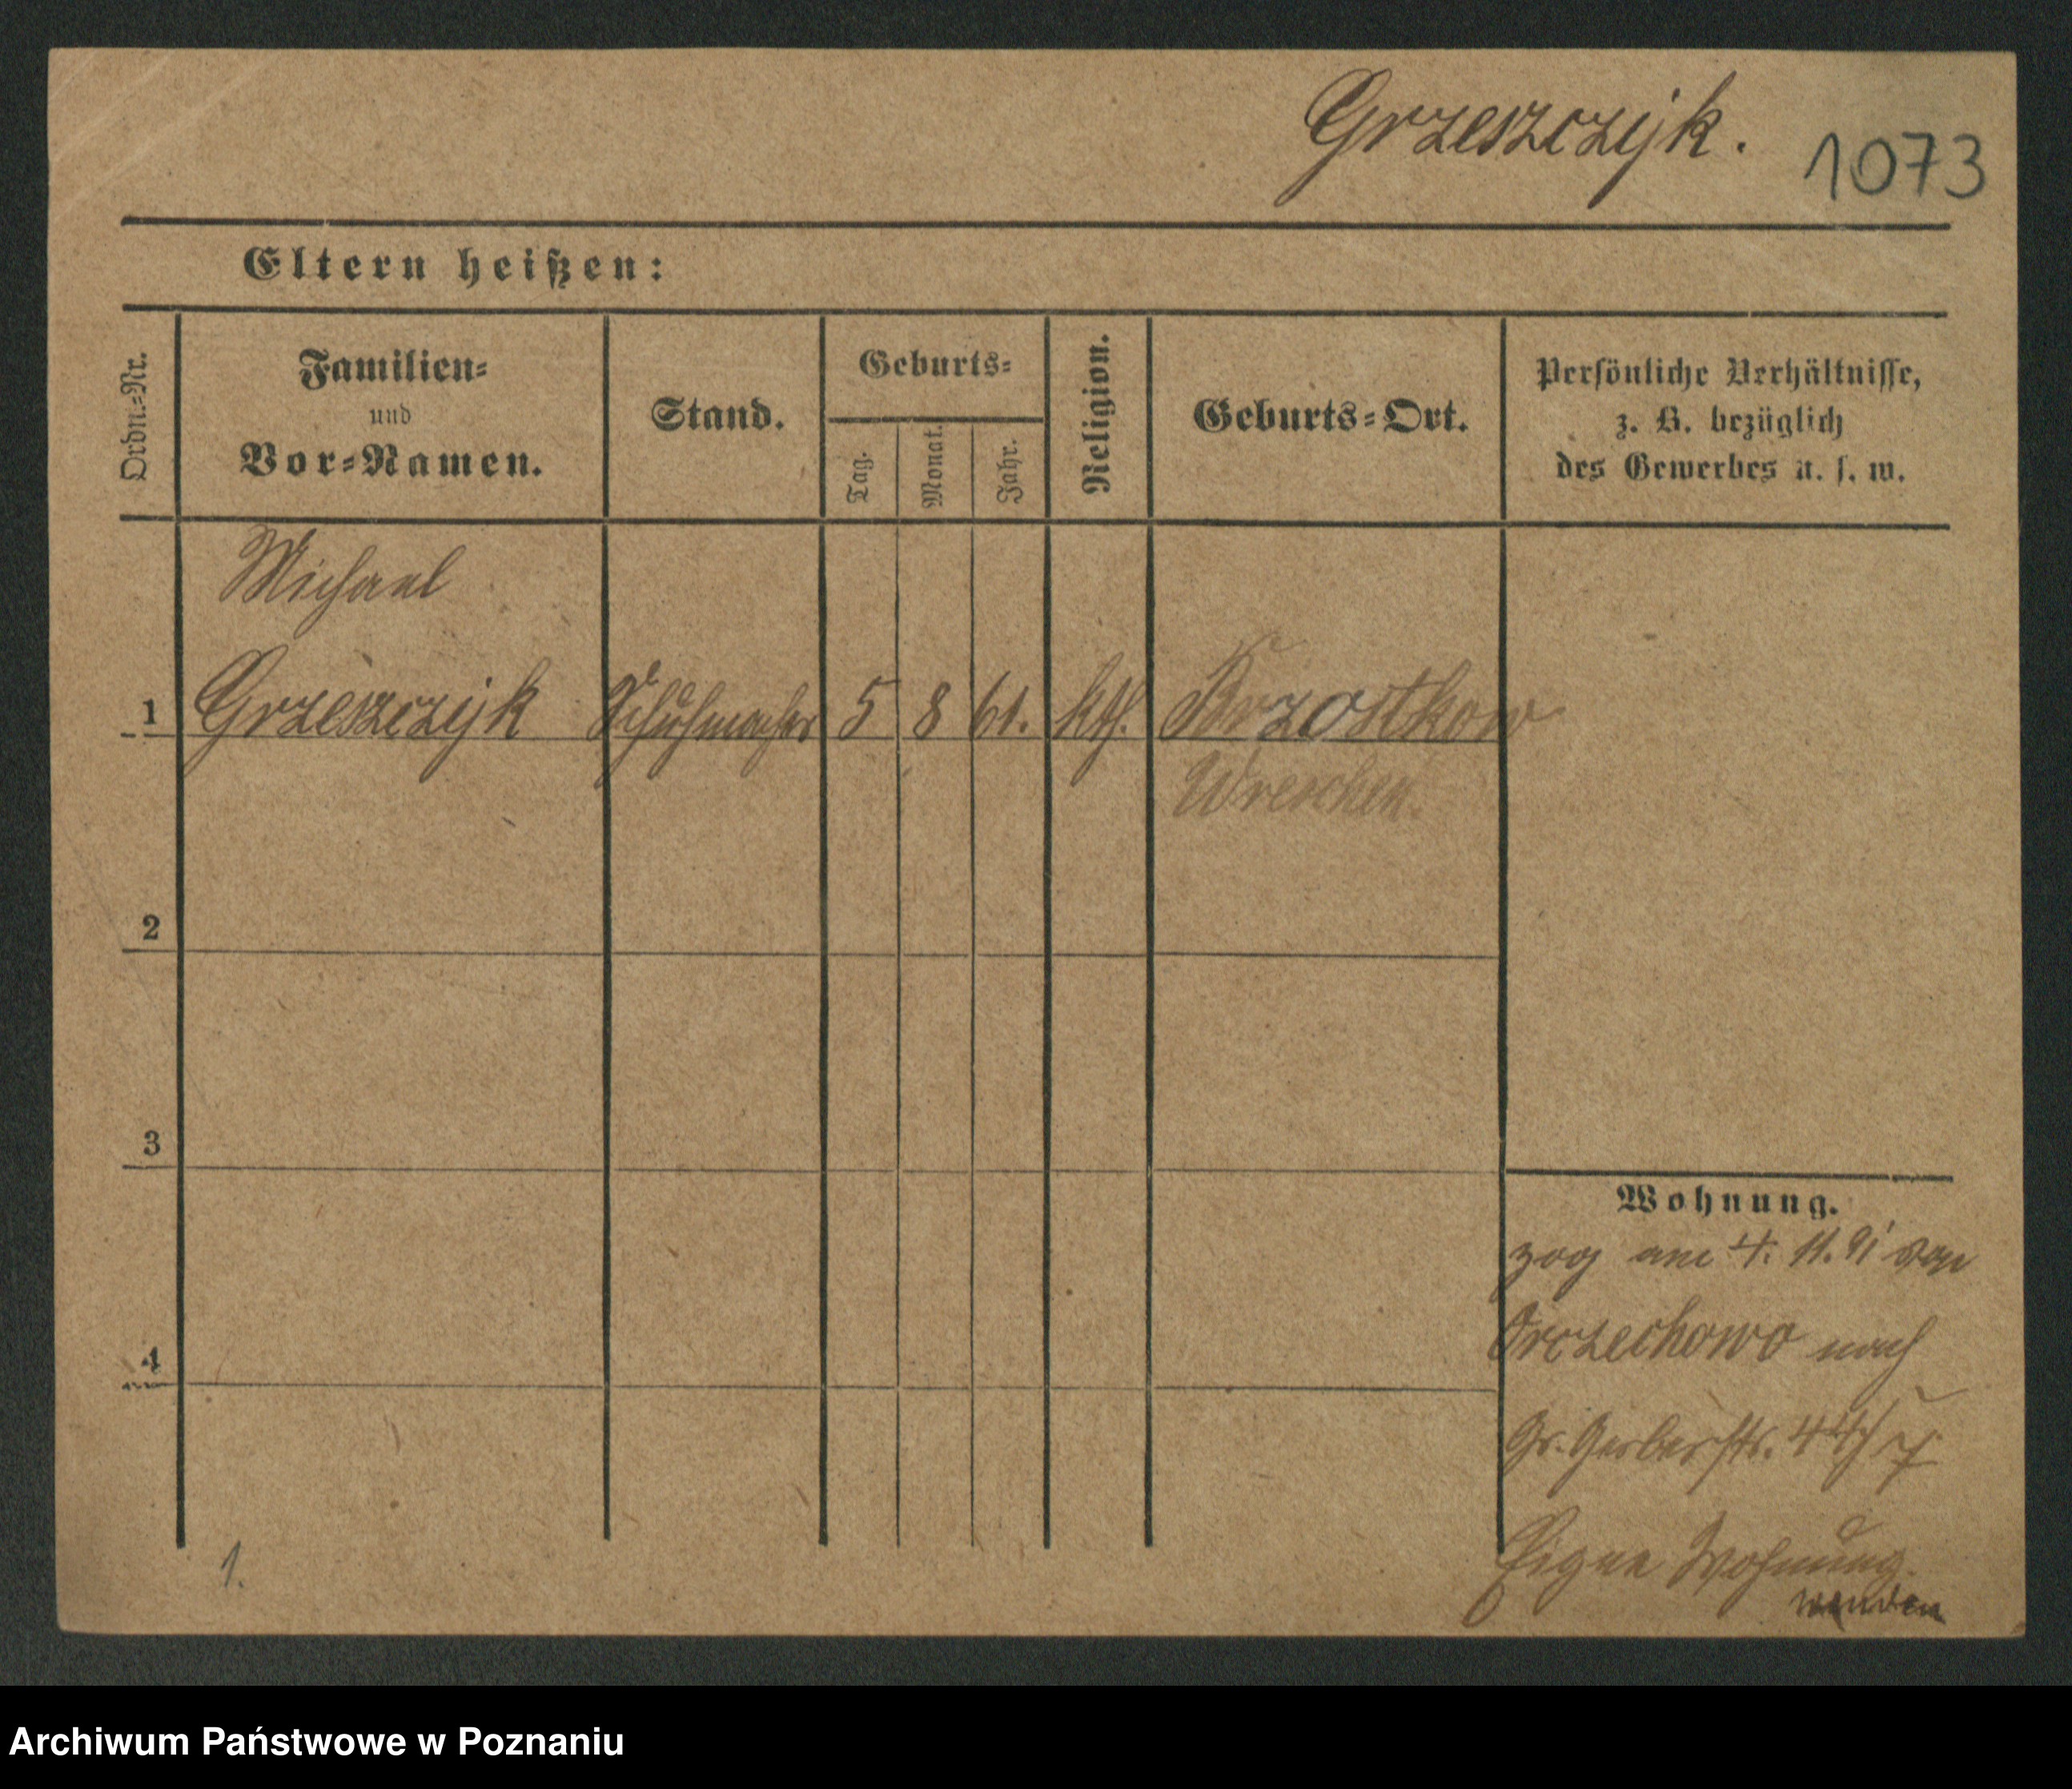 Grzeszczyk.
1073
Eltern heißen:
Ordn.-Nr.
Familien-
und
Vor-Namen.
Stand.
Geburts-
Tag.
Monat.
Jahr.
Religion.
Geburts-Ort.
Persönliche Verhältnisse,
z. B. bezüglich
des Gewerbes u. s. w.
Michael
1 Grzeszczyk Schuhmacher 5 8 61. kth. Brzostkow
Wreschen.
2
3
Wohnung.
zog am 4. 11. 91 von
Orzechowo nach
4
Gr. Gerberstr. 44/
Eigne Wohnung.
wenden
1.
Archiwum Państwowe w Poznaniu